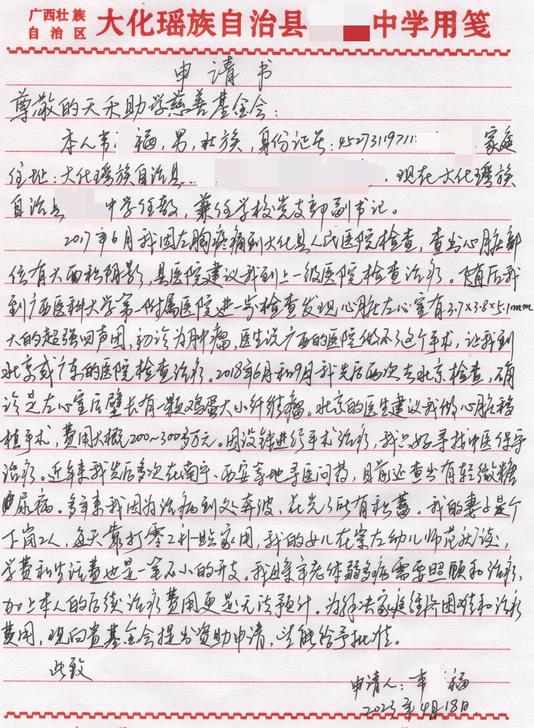 广西壮族自治区 大化瑶族自治县 中学用笺
申请书
尊敬的天禾助学慈善基金会:
本人韦 福,男,壮族,身份证号:45273119711 家庭
住址:大化瑶族自治县 . 现在大化瑶族
自治县 中学任教,兼任学校党支部副书记。
2017年6月我因左胸疼痛到大化县人民医院检查,查出心脏部
位有大面积阴影,县医院建议我到上一级医院检查治疗。随后我
到广西医科大学第一附属医院进一步检查发现心脏左心室有3.7×3.8×5.1mm
大的超强回声团,初诊为肿瘤,医生说广西的医院做不了这个手术,让我到
北京或广东的医院检查治疗。2018年6月和9月我先后两次去北京检查,确
诊是左心室后壁长有一颗鸡蛋大小纤维瘤。北京的医生建议我做心脏移
植手术,费用大概200~300多万元。因没钱进行手术治疗,我只好寻找中医保守
治疗。近年来我先后多次在南宁、西安等地寻医问药,目前还查出有轻微糖
尿病。多年来我因为治病到处奔波,花光了所有积蓄。我的妻子是个
下岗工人,每天靠打零工补贴家用,我的女儿在崇左幼儿师范就读,
学费和生活费也是一笔不小的开支。我母亲年老体弱多病需要照顾和治疗,
加上本人的后续治疗费用更是无法预计。为解决家庭经济困难和治疗
费用,现向贵基金会提出资助申请,望能给予批准。
此致
申请人:韦 福
2023年4月18日